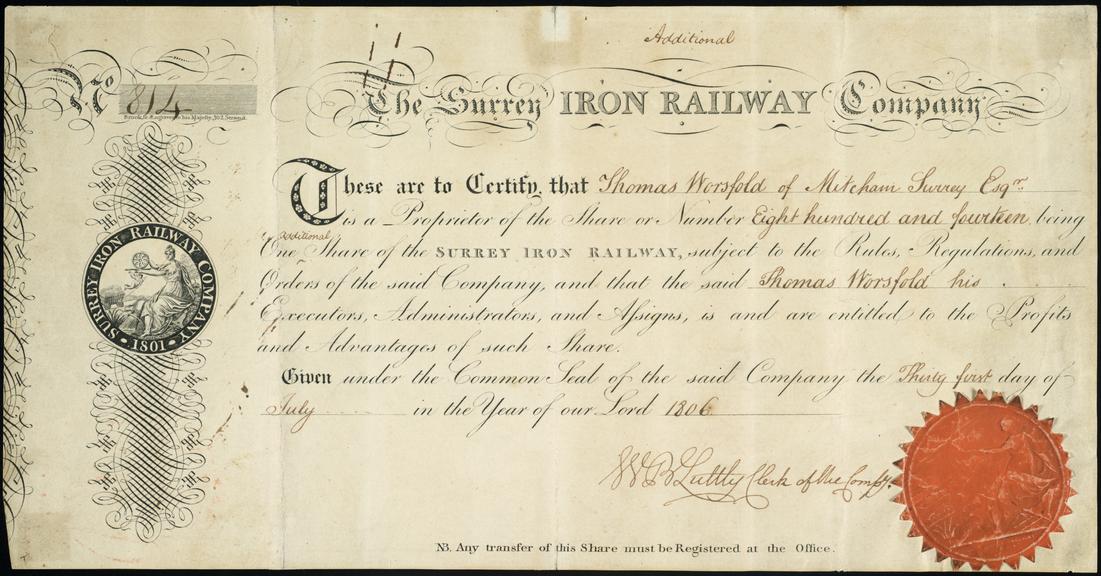 Additional
No 814
The Surrey IRON RAILWAY Company
These are to Certify, that Thomas Worsfold of Mitcham Surrey Esqr.
is a Proprietor of the Share or Number Eight hundred and fourteen being
additional
One Share of the SURREY IRON RAILWAY, subject to the Rules, Regulations, and
Orders of the said Company, and that the said Thomas Worsfold his
Executors, Administrators, and Assigns, is and are entitled to the Profits
and Advantages of such Share.
Given under the Common Seal of the said Company the Thirty first day of
July in the Year of our Lord 1806
W B Luttly Clerk of the Compy.
NB. Any transfer of this Share must be Registered at the Office.
SURREY IRON RAILWAY COMPANY
• 1801 •